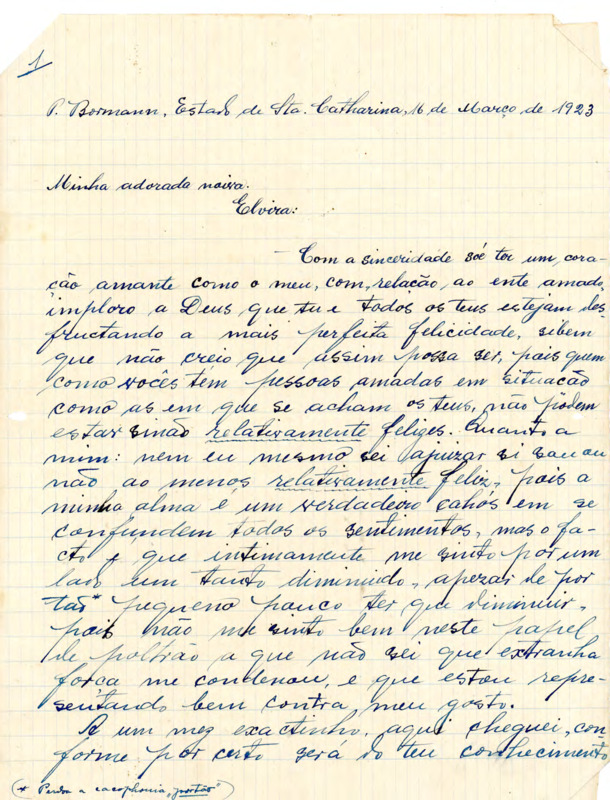 1
P. Bormann, Estado de Sta. Catharina, 16 de Março de 1923
Minha adorada noiva.
Elvira:
Com a sinceridade sóe ter um cora-
ção amante como o meu, com, relação, ao ente amado,
imploro a Deus que tu e todos os teus estejam des-
fructando a mais perfeita felicidade, sibem
que não creio que assim possa ser, pois quem
como vocês têm pessoas amadas em situacão
como as em que se acham os teus, não pódem
estar sinão relativamente felizes. Quanto a
mim: nem eu mesmo sei ajuizar si sou ou
não ao menos relativamente feliz, pois a
minha alma é um verdadeiro cahós em se
confundem todos os sentimentos, mas o fa-
cto é que intimamente me sinto por um
lado um tanto diminuido, apezar de por
tão* pequeno pouco ter que diminuir,
pois não me sinto bem neste papel
de poltrão a que não sei que extranha
força me condenou, e que estou repre-
sentando bem contra meu gosto.
A um mez exactinho, aqui cheguei, con
forme por certo será do teu conhecimento
(* Perdôa a cacophonia "portão")